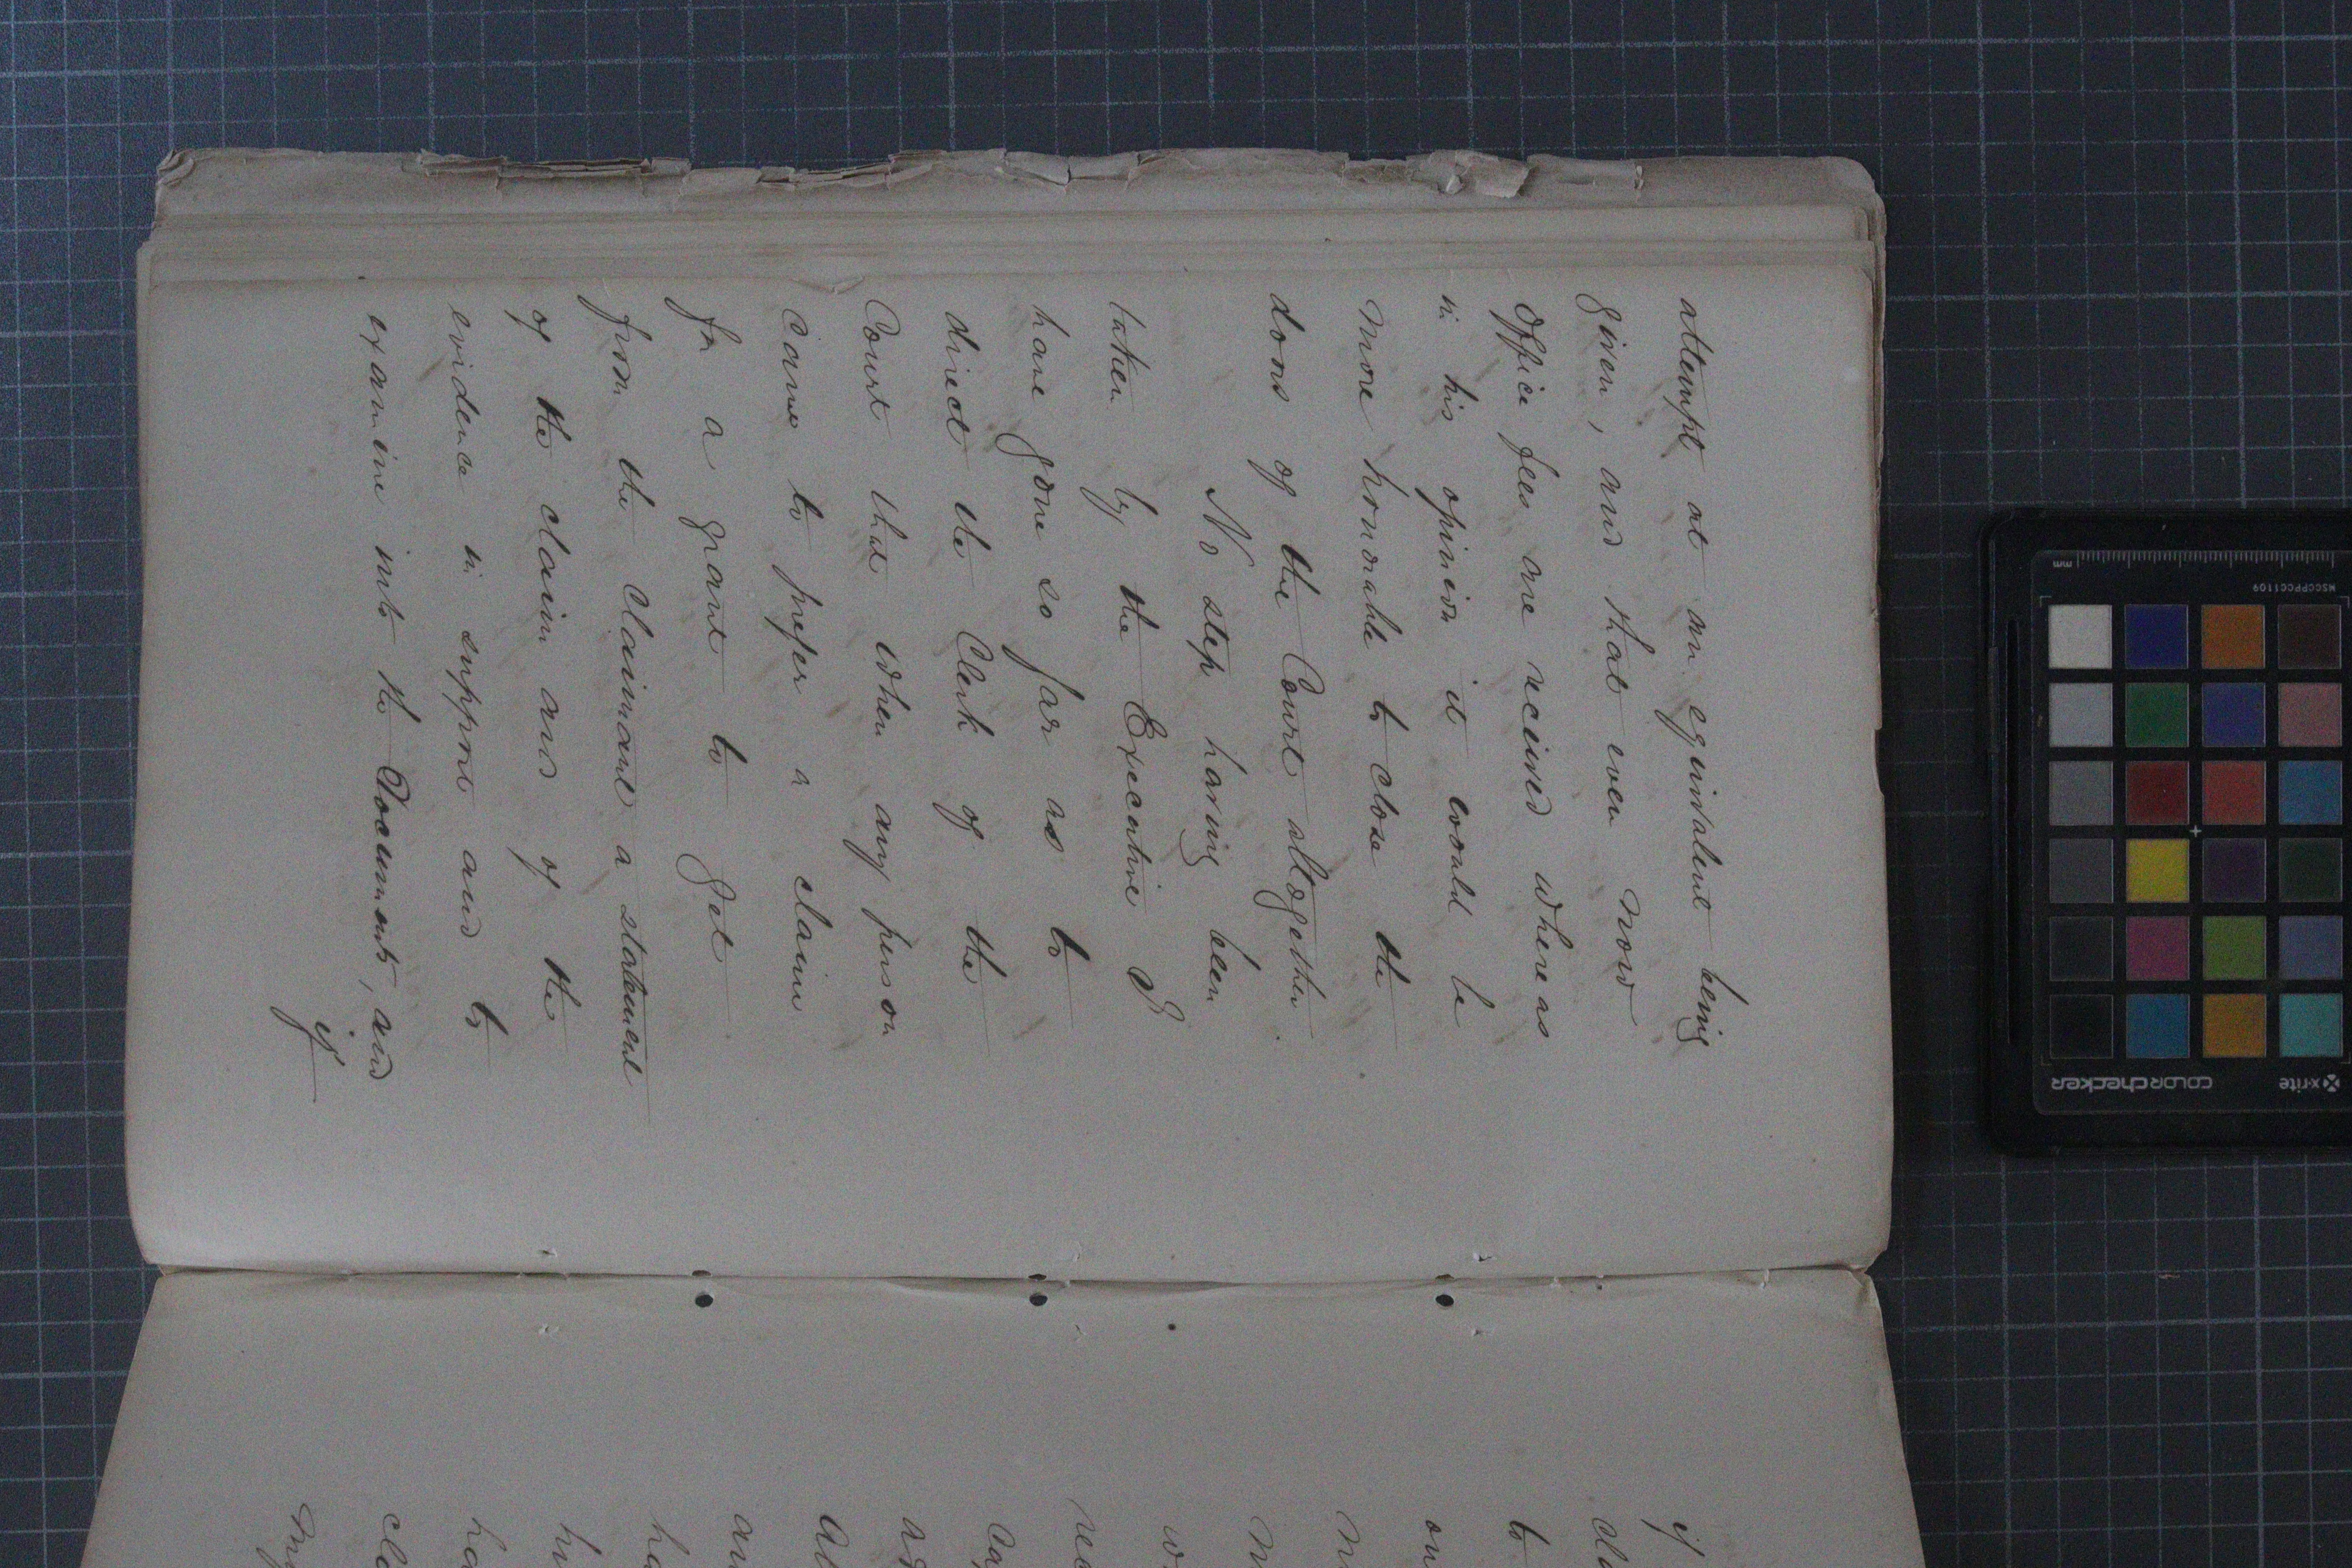 attempt at an equivalent being
given, and that even now
Office fees are received whereas
in his opinion it would be
more honorable to close the
doors of the Court altogether.
No step having been
taken by the Executive I
have gone so far as to
direct the Clerk of the
Court that when any person
came to prefer a claim
for a grant to get
from the Claimant a statement
of the claim and of the
evidence in support and to
examine into the Documents, and
if
if
cla
to
on
ha
hu
ha
cla
my
mm
NSCCPPCC1109
x-rite
colorchecker